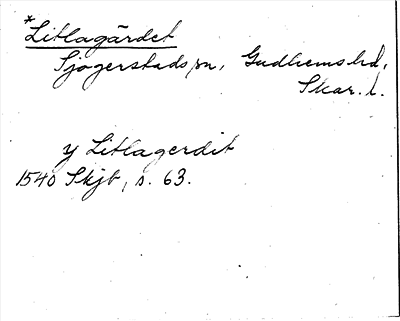 *Litlagärdet
Sjogerstads sn, Gudhems hd,
Skar. l.
y Litlagerdit
1540 Skjb, s. 63.